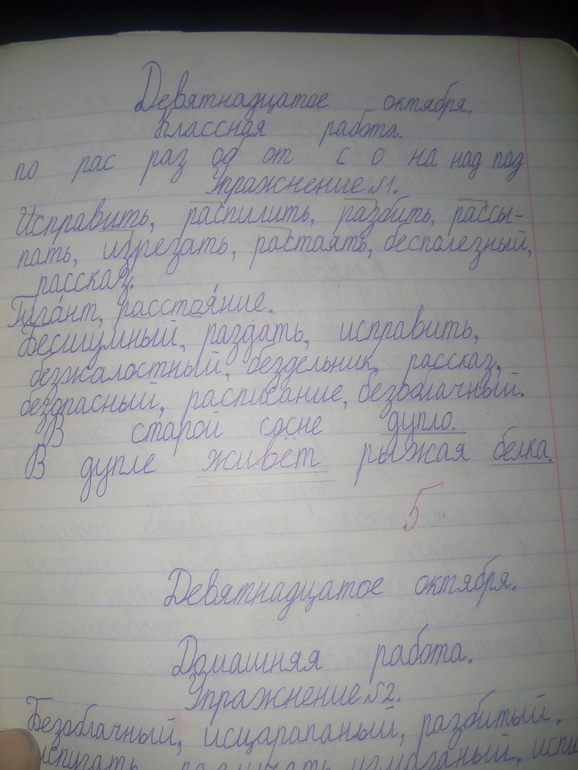 Девятнадцатое октября.
Классная работа.
по рас раз од от с о на над под
Упражнение №1.
Исправить, распилить, разбить, рассы-
пать, изрезать, растаять, бесполезный,
рассказ.
Гига́нт, расстоя́ние.
Бесшумный, раздать, исправить,
безжалостный, бездельник, рассказ,
безопасный, расписание, безоблачный.
В старой сосне дупло.
В дупле живёт рыжая белка.
5
Девятнадцатое октября.
Домашняя работа.
Упражнение №2.
Безоблачный, исцарапаный, разбитый,